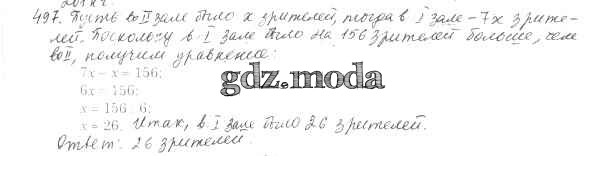 497. Пусть во II зале было x зрителей, тогда в I зале – 7x зрите-
лей. Поскольку в I зале было на 156 зрителей больше, чем
во II, получим уравнение:
7x – x = 156;
6x = 156;
gdz.moda
x = 156 : 6;
x = 26. Итак, в I зале было 26 зрителей.
Ответ: 26 зрителей.